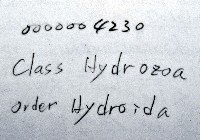 0000004230
Class Hydrozoa
order Hydroida